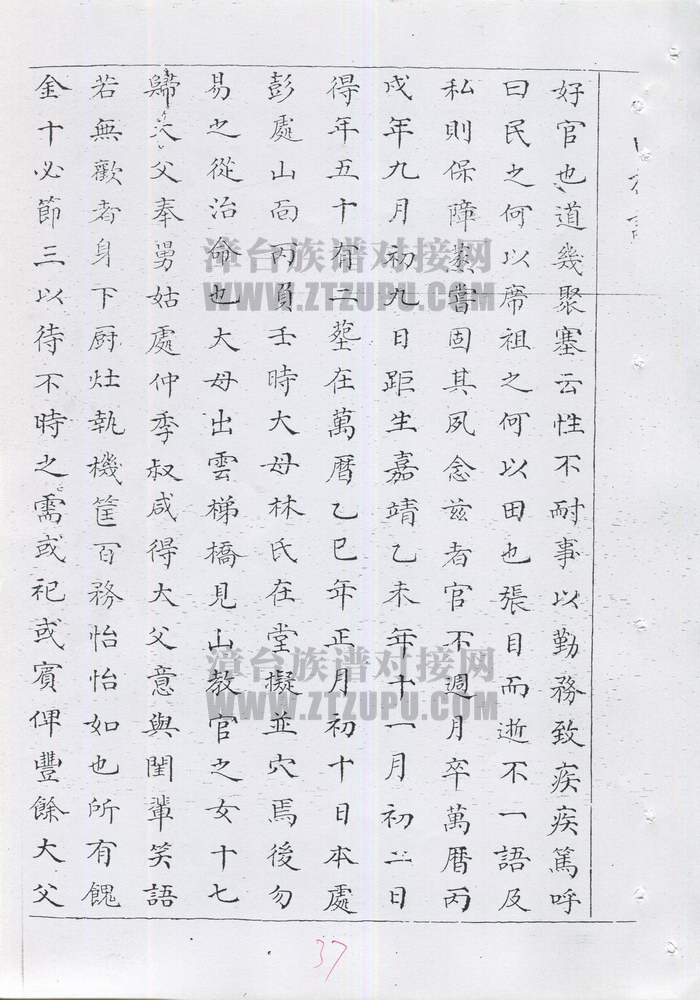 好官也道幾聚塞云性不耐事以勤務致疾疾篤呼
曰民之何以席祖之何以田也張目而逝不一語及
私則保障蒸嘗固其夙念茲者官不週月卒萬曆丙
戌年九月初九日距生嘉靖乙未年十一月初二日
得年五十有二墓在萬曆乙巳年正月初十日本處
彭處山向丙負壬時大母林氏在堂擬並穴焉後勿
易之從治命也大母出雲梯橋見山教官之女十七
歸大父奉舅姑處仲季叔咸得大父意與閨輩笑語
若無歡者身下厨灶執機筐百務怡怡如也所有餽
金十必節三以待不時之需或祀或賓俾豐餘大父
漳台族谱对接网
WWW.ZTZUPU.COM
漳台族谱对接网
WWW.ZTZUPU.COM
37